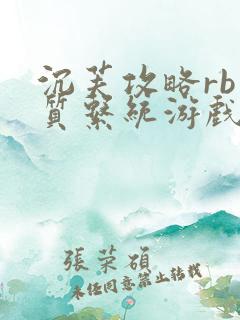 沉芙攻略rb
质系统游戏
張荣碩
未经同意禁止转载